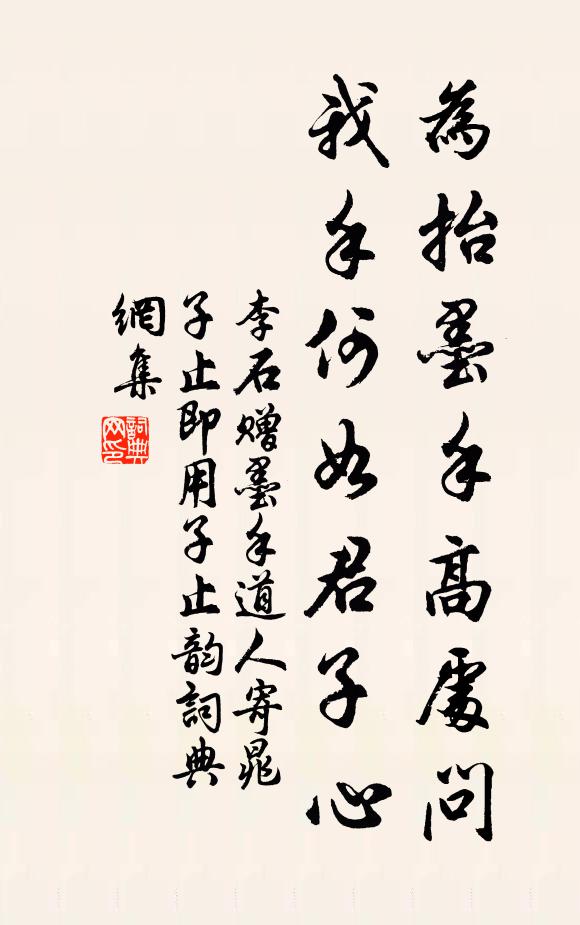 為抬墨手高處問
我手何如君子心
李石贈墨手道人寄晁
子止即用子止韵詞典
網集
詞典
网印